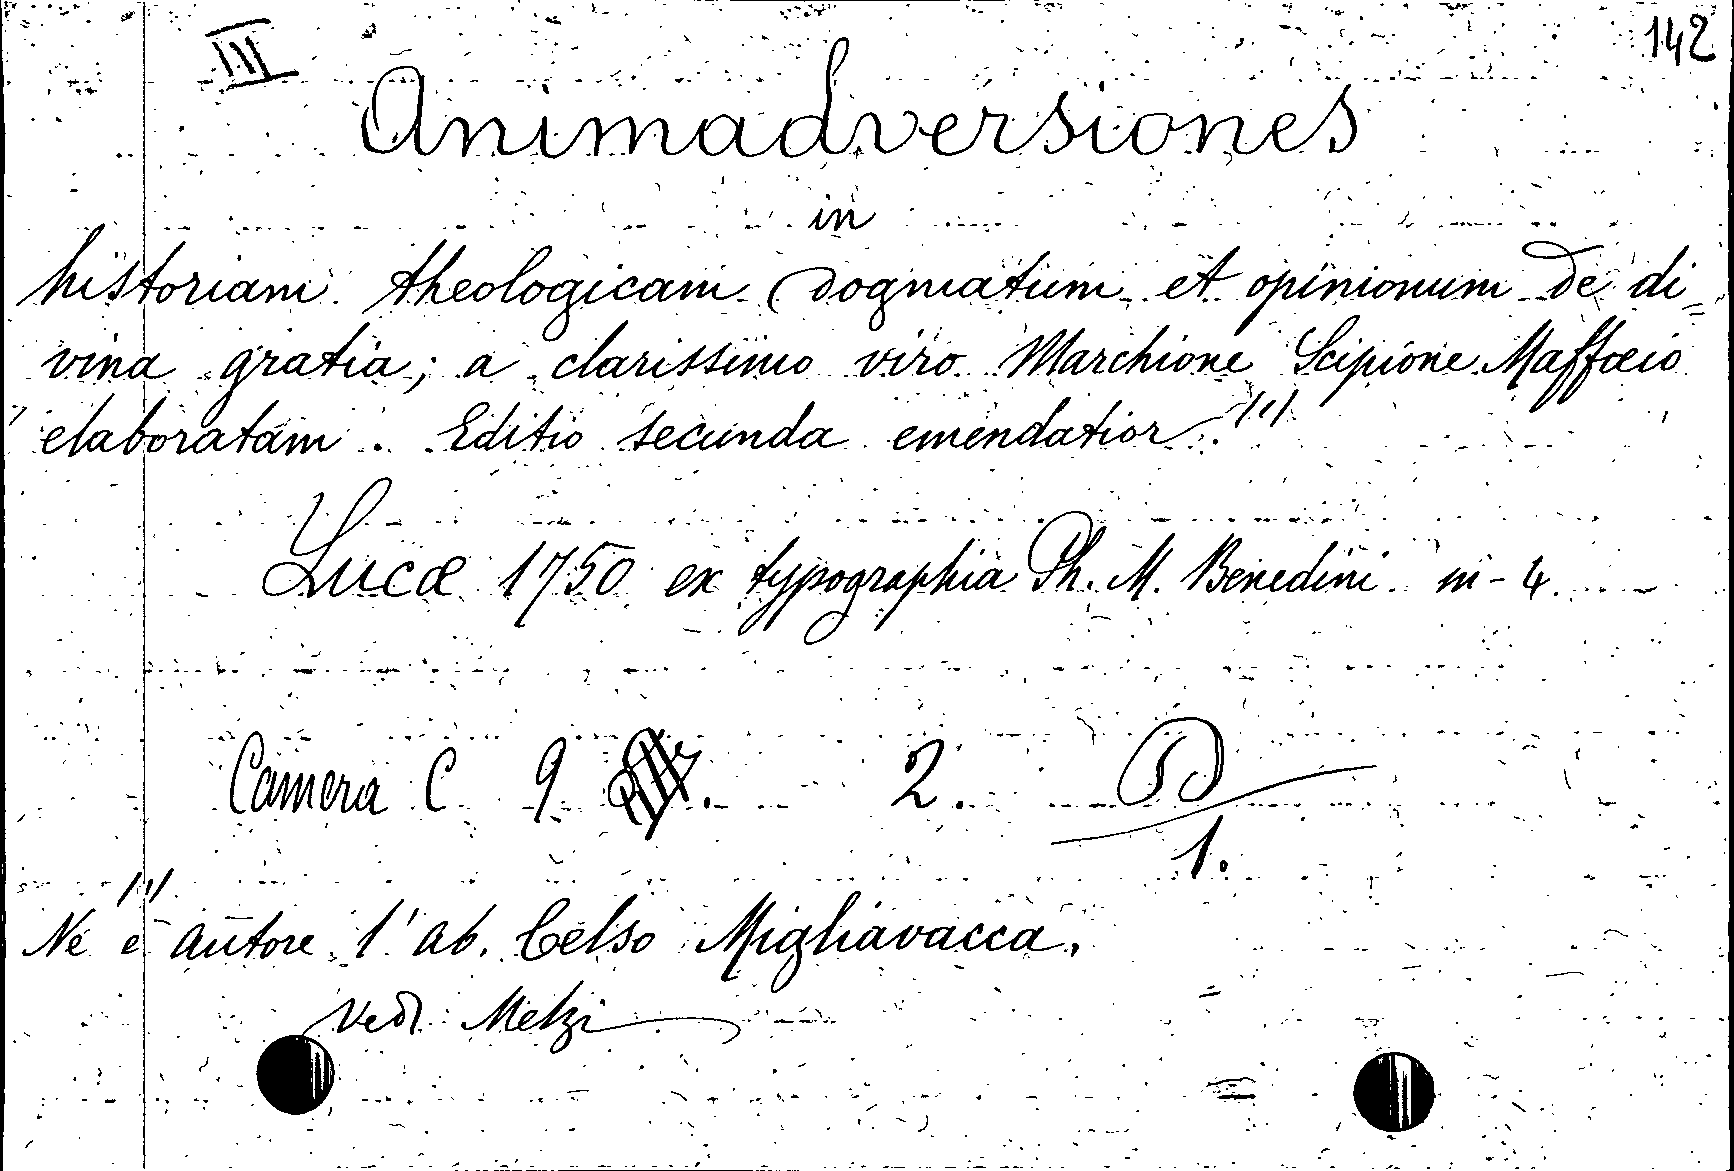 III
142
Animadversiones
in
historiam theologicam dogmatum et opinionum de di=
vina gratia; a clarissimo viro Marchione Scipione Maffæio
elaboratam. Editio secunda emendatior. (1)
Lucæ 1750 ex typographia Ph. M. Benedini in-4.
Camera C 9 2. D
1.
(1)
Ne è autore l'ab. Celso Migliavacca.
Vedi Melzi